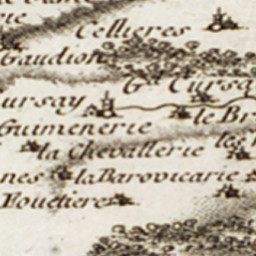 Cellieres
Gaudion
Gd. Cursay
ursay
le Br
Guimenerie
les
la Chevallerie
nes
la Barovicarie
Fouetiere